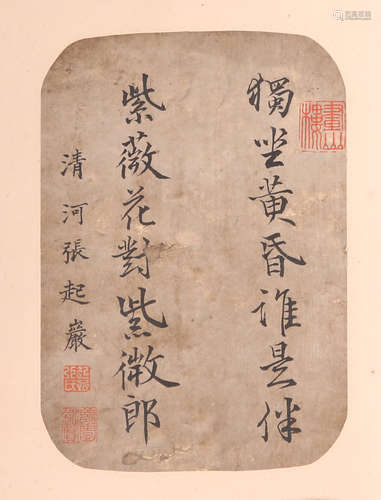 獨坐黃昏誰是伴
紫薇花對紫微郎
清河張起巖